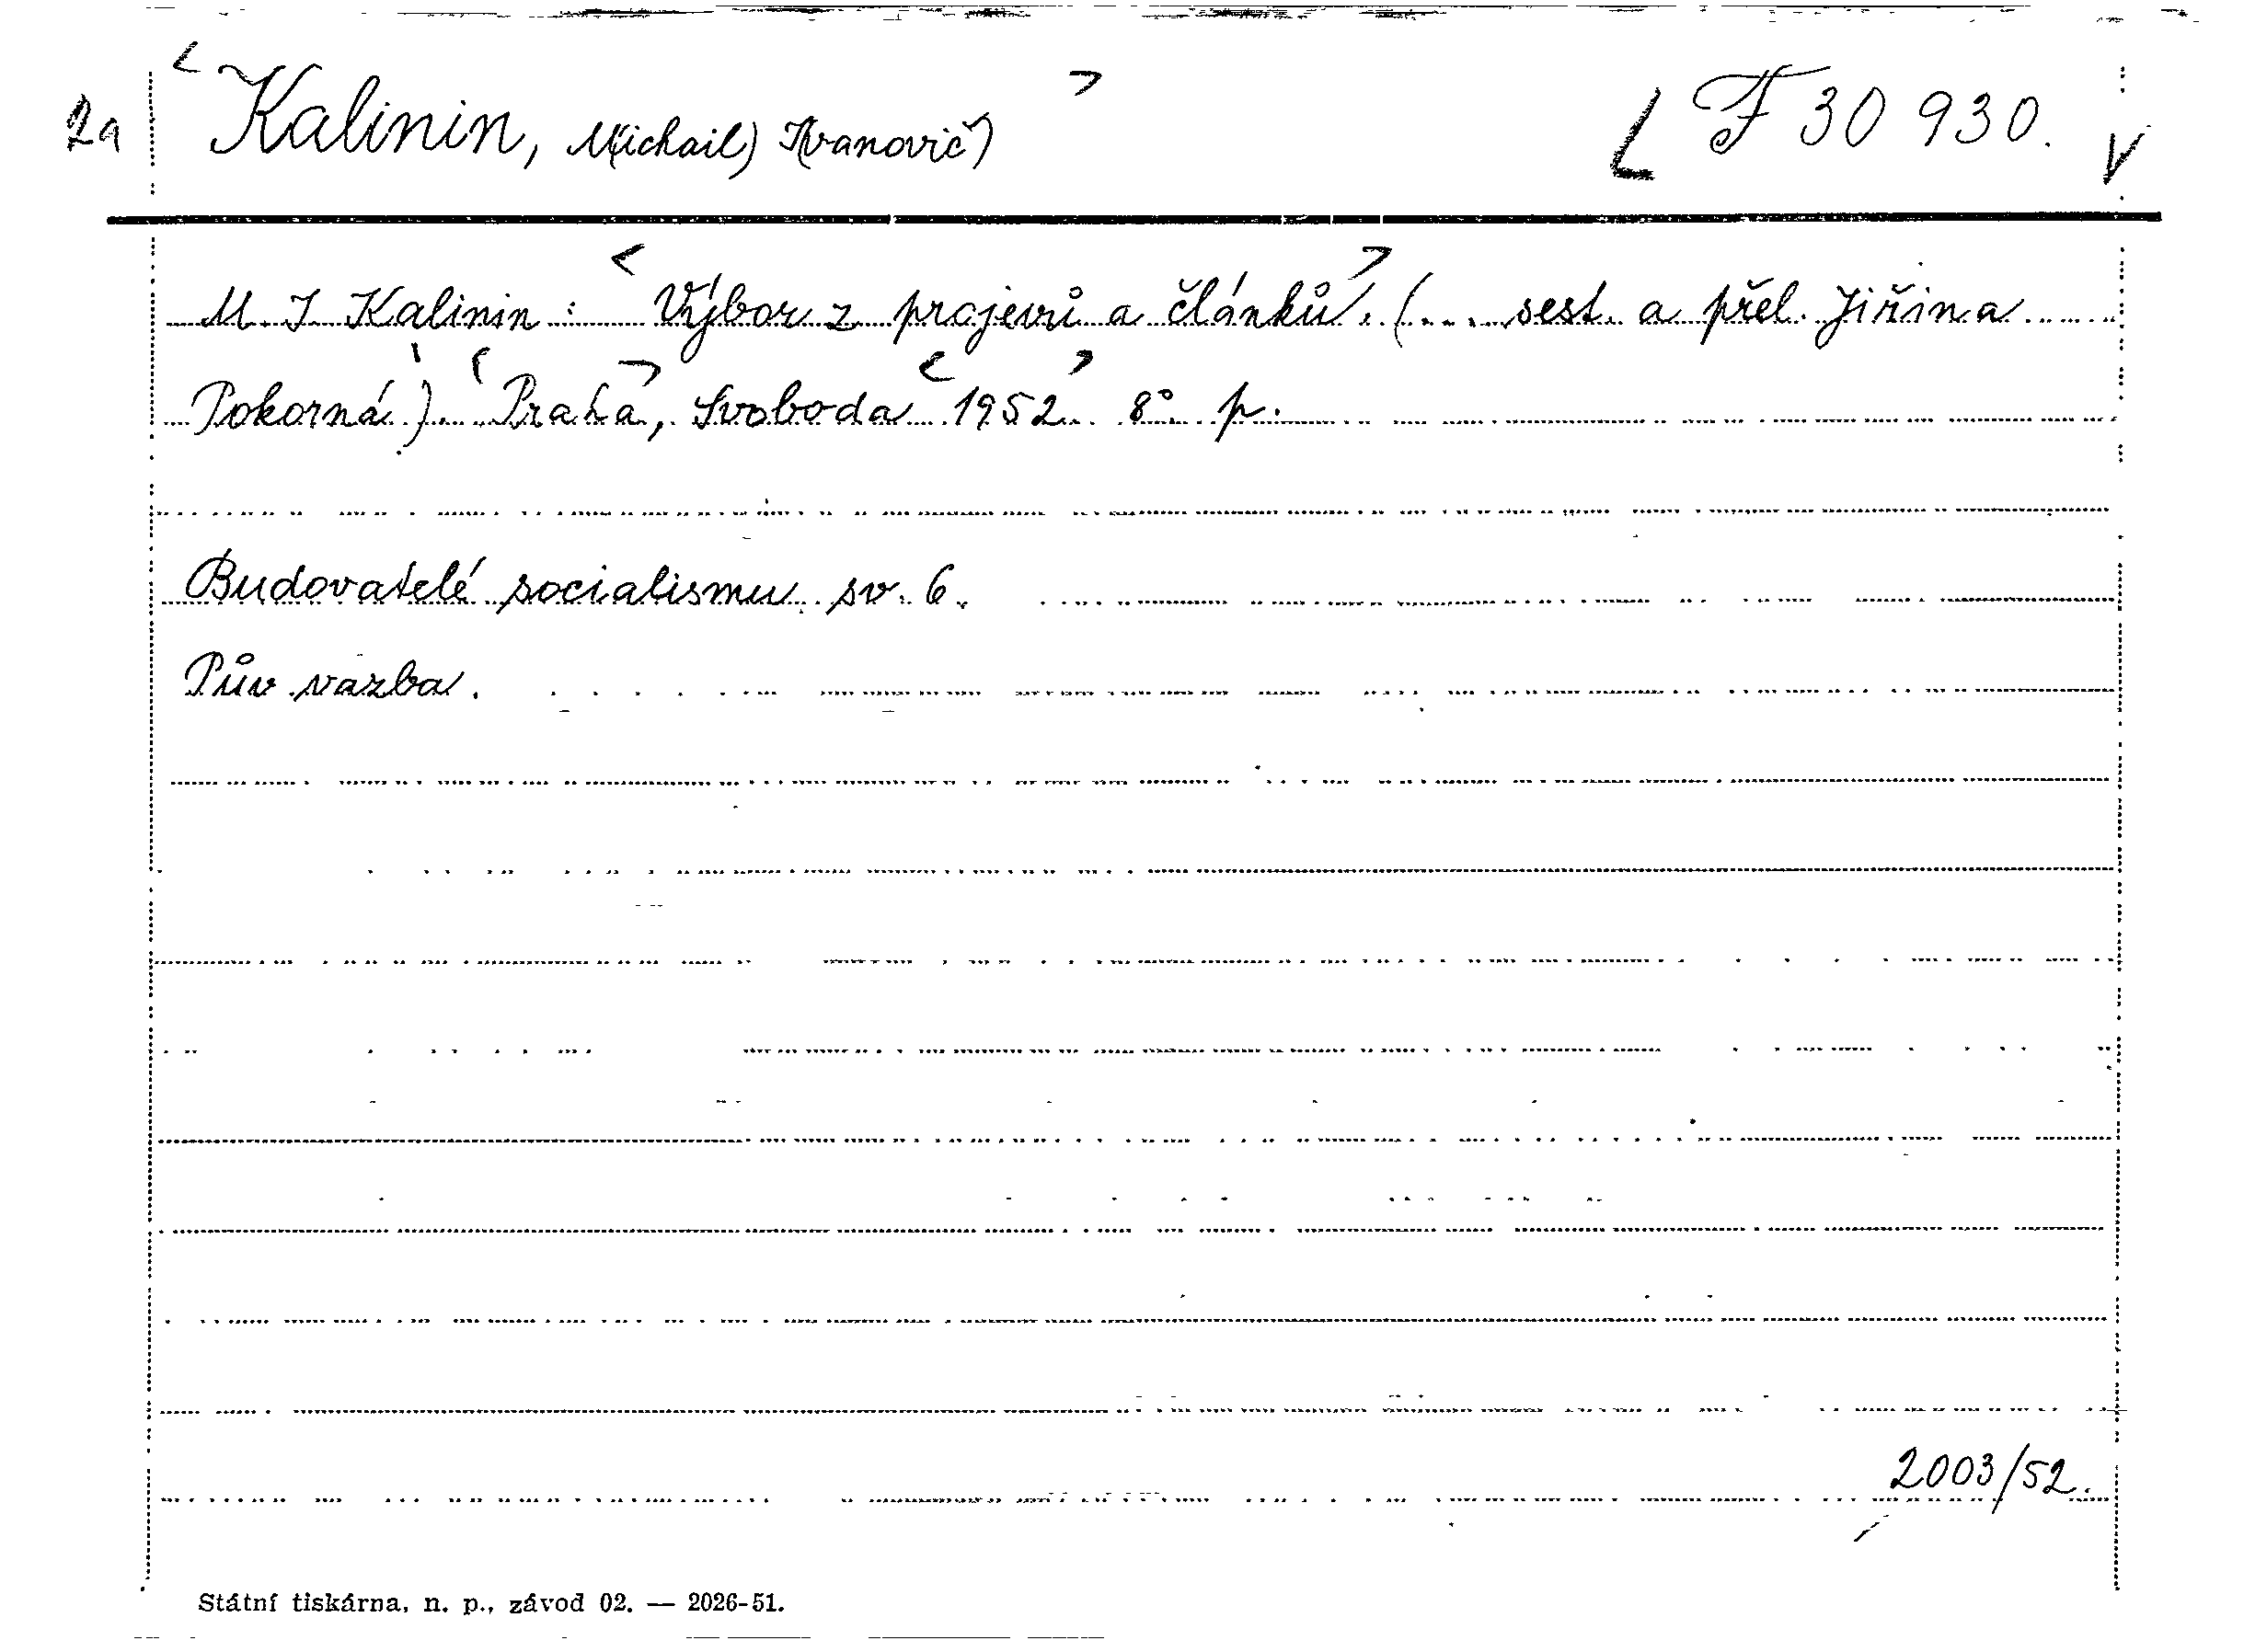 2a < Kalinin, M(ichail) I(vanovič) > F 30 930. V
M. I Kalinin: < Výbor z projevů a článků >. (... sest. a přel. Jiřina
Pokorná). < Praha >, Svoboda < 1952 >. 8°. p.
Budovatelé socialismu sv. 6.
Pův vazba.
2003/52.
Státní tiskárna, n. p., závod 02. — 2026-51.